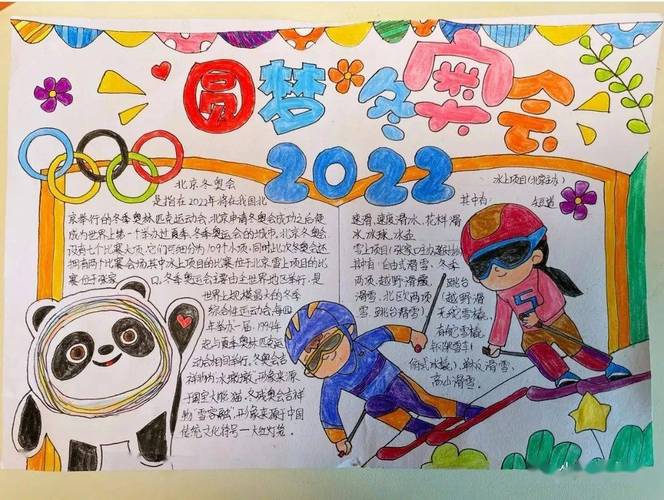 圆梦冬奥会
2022
北京冬奥会
是指在2022年将在我国北
京举行的冬季奥林匹克运动会,北京申请冬奥会成功之后使
成为世界上第一个举办过夏季、冬季奥运会的城市。北京冬奥会
设有七个比赛大项,它们可细分为109个小项,同时此次冬奥会还
拥有两个比赛会场其中冰上项目的比赛位于北京雪上项目的比
赛位于张家口。冬季奥运会主要由全世界地区举行,是
世界上规模最大的冬季
综合性运动会,每四
年举办一届,1994年
起与夏季奥林匹克运
动会相间举行。冬奥会吉
祥物为“冰墩墩”,形象来源
于国宝大熊猫,冬残奥会吉祥
物“雪容融”,形象来源于中国
传统文化符号—大红灯笼。
冰上项目(北京主办)
其中有:
短道
速滑,速度滑冰、花样滑
冰,冰球,冰壶
其中有:自由式滑雪、冬季
两项,越野滑雪
跳台
滑雪,北欧两项
(越野滑
雪,跳台滑雪)
无舵雪橇,
有舵雪橇,
钢架雪车
(俯式冰橇),单板滑雪,
高山滑雪。